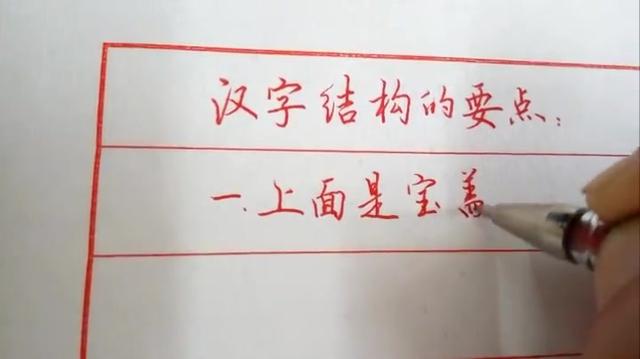 汉字结构的要点:
一.上面是宝盖